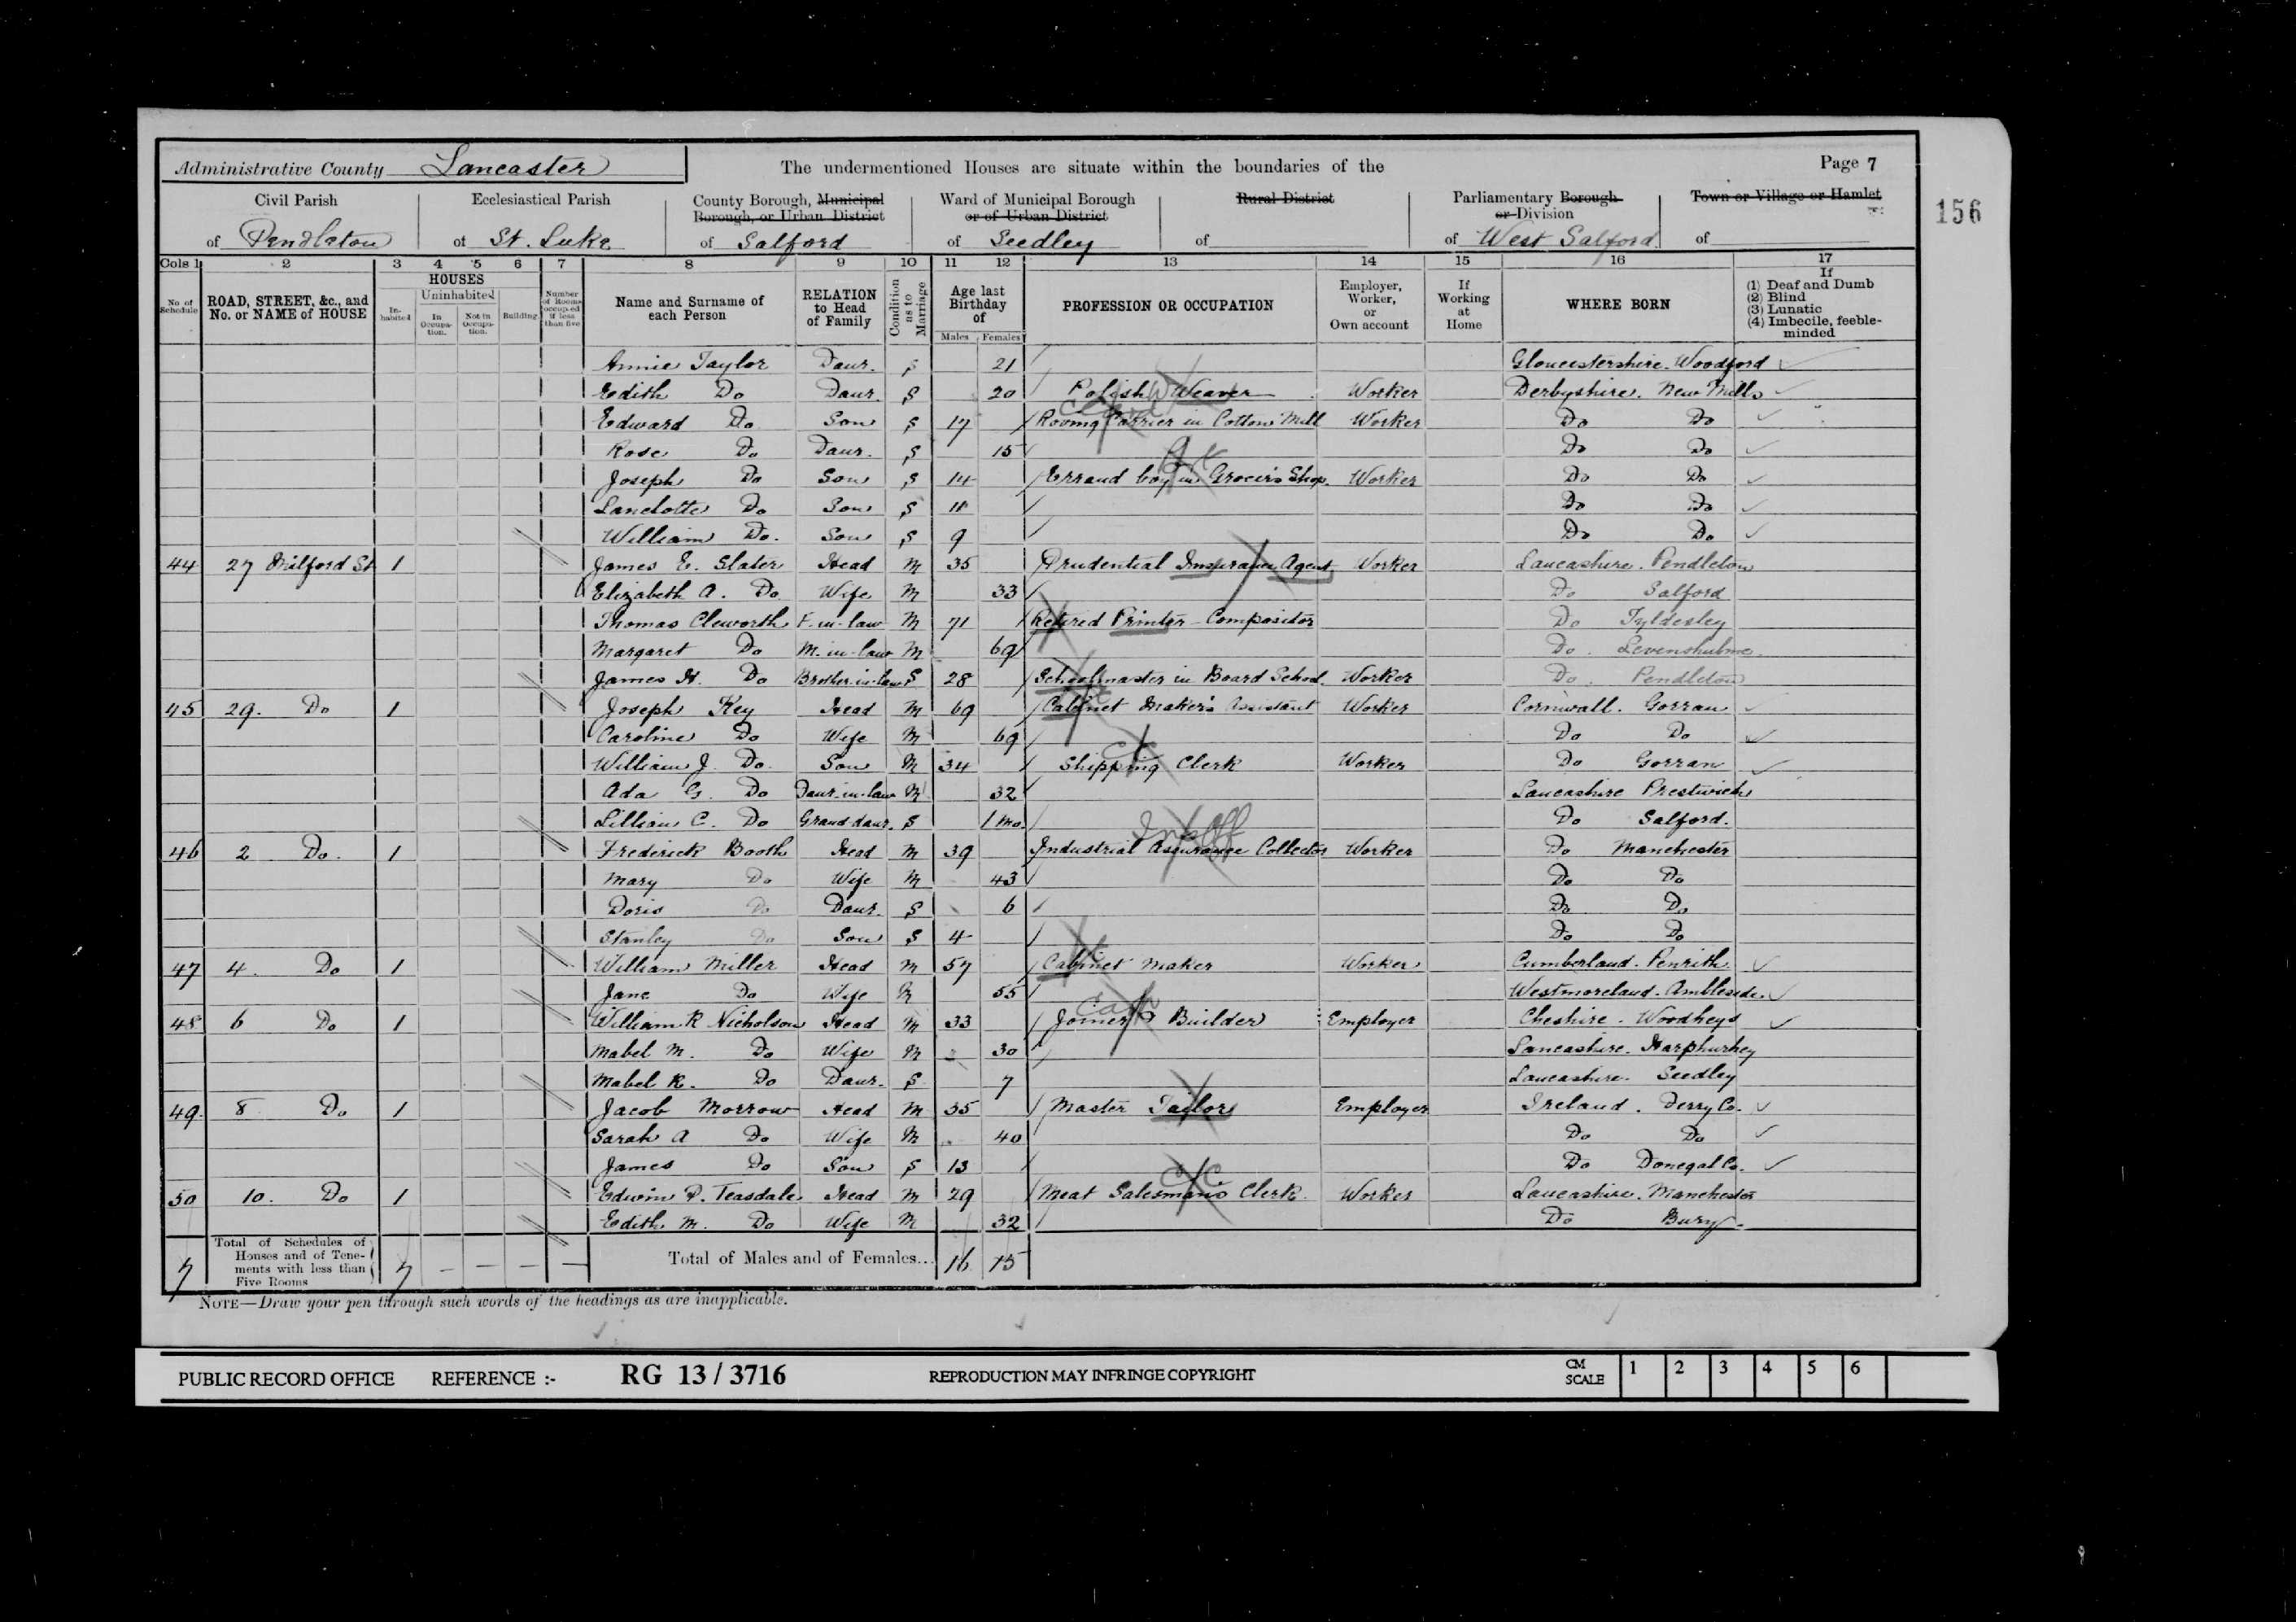 Administrative County Lancaster The undermentioned Houses are situate within the boundaries of the Page 7
Civil Parish Ecclesiastical Parish County Borough, Municipal Borough, or Urban District Ward of Municipal Borough or of Urban District Rural District Parliamentary Borough or Division Town or Village or Hamlet
of Pendleton of St. Luke of Salford of Seedley of of West Salford of
156
Cols 1 2 3 4 5 6 7 8 9 10 11 12 13 14 15 16 17
No of Schedule ROAD, STREET, &c., and No. or NAME of HOUSE HOUSES Inhabited Uninhabited In Occupation. Not in Occupation. Building. Number of Rooms occupied if less than five Name and Surname of each Person RELATION to Head of Family Condition as to Marriage Age last Birthday of Males Females PROFESSION OR OCCUPATION Employer, Worker, or Own account If Working at Home WHERE BORN If (1) Deaf and Dumb (2) Blind (3) Lunatic (4) Imbecile, feeble-minded
Annie Taylor Daur. S 21 Gloucestershire. Woodford
Edith Do Daur. S 20 Polish Weaver Worker Derbyshire. New Mills
Edward Do Son S 17 Carrier in Cotton Mill Worker Do Do
Rose Do Daur. S 15 Do Do
Joseph Do Son S 14 Errand boy in Grocer's Shop. Worker Do Do
Lanclotte Do Son S 11 Do Do
William Do. Son S 9 Do Do
44 27 Milford St 1 James E. Slater Head M 35 Prudential Insurance Agent Worker Lancashire. Pendleton
Elizabeth A. Do Wife M 33 Do Salford
Thomas Cleworth F.-in-law M 71 Retired Printer-Compositor Do Tyldesley
Margaret Do M.-in-law M 69 Do. Levenshulme.
James H. Do Brother-in-law S 28 Schoolmaster in Board School. Worker Do. Pendleton
45 29. Do 1 Joseph Key Head M 69 Cabinet Maker's Assistant Worker Cornwall. Gorran
Caroline Do Wife M 69 Do Do
William J. Do. Son M 34 Shipping Clerk Worker Do Gorran
Ada G. Do Daur-in-law M 32 Lancashire Prestwich
Lillian C. Do Grand daur. S 1 mo. Do Salford.
46 2 Do. 1 Frederick Booth Head M 39 Industrial Assurance Collector Worker Do Manchester
Mary Do Wife M 43 Do Do
Doris Do Daur. S 6 Do Do
Stanley Do Son S 4 Do Do
47 4. Do 1 William Miller Head M 57 Cabinet Maker Worker Cumberland. Penrith
Jane Do Wife M 55 Westmoreland. Ambleside.
48 6 Do 1 William R Nicholson Head M 33 Joiner & Builder Employer Cheshire. Woodheys
Mabel M. Do Wife M 30 Lancashire. Harphurhey
Mabel R. Do Daur. S 7 Lancashire. Seedley
49. 8 Do 1 Jacob Morrow Head M 35 Master Tailor Employer Ireland. Derry Co.
Sarah A Do Wife M 40 Do Do
James Do Son S 13 Do Donegal Co.
50 10. Do 1 Edwin P. Teasdale Head M 29 Meat Salesman's Clerk. Worker Lancashire. Manchester
Edith M. Do Wife M 32 Do Bury.
7 Total of Schedules of Houses and of Tenements with less than Five Rooms 7 — — — — Total of Males and of Females... 16 15
NOTE—Draw your pen through such words of the headings as are inapplicable.
PUBLIC RECORD OFFICE REFERENCE :- RG 13 / 3716 REPRODUCTION MAY INFRINGE COPYRIGHT CM SCALE 1 2 3 4 5 6